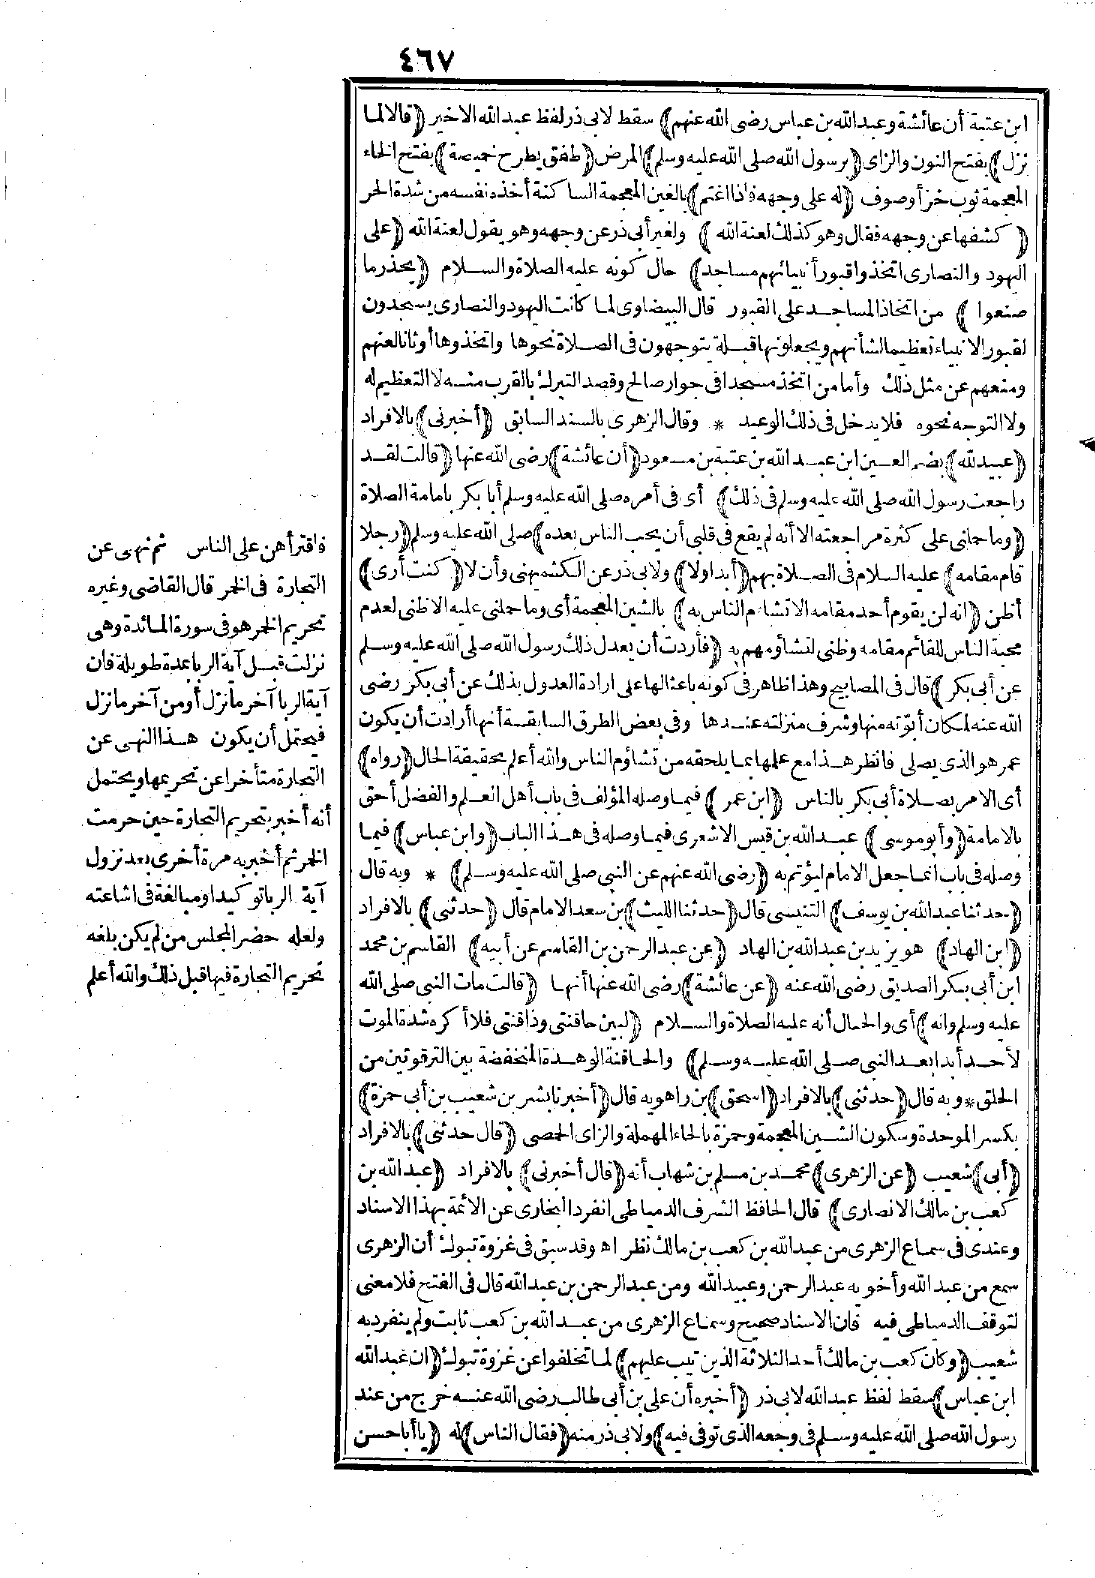 ٤٦٧
ابن عتبة أن عائشة وعبدالله بن عباس رضى الله عنهم) سقط لابى ذر لفظ عبد الله الاخير (قالا لما
نزل) بفتح النون والزاى (برسول الله صلى الله عليه وسلم) المرض (طفق يطرح خميصة) بفتح الخاء
المعجمة ثوب خز أوصوف (له على وجهه فاذا اغتم) بالغين المعجمة الساكنة أخذه نفسه من شدة الحر
(كشفها عن وجهه فقال وهو كذلك لعنة الله) ولغير أبى ذر عن وجهه وهو يقول لعنة الله (على
اليهود والنصارى اتخذوا قبور أنبيائهم مساجد) حال كونه عليه الصلاة والسلام (يحذر ما
صنعوا) من اتخاذ المساجد على القبور قال البيضاوى لما كانت اليهود والنصارى يسجدون
لقبور الانبياء تعظيما لشأنهم ويجعلونها قبلة يتوجهون فى الصلاة نحوها واتخذوها أوثانا لعنهم
ومنعهم عن مثل ذلك وأما من اتخذ مسجدا فى جوار صالح وقصد التبرك بالقرب منه لا التعظيم له
ولا التوجه نحوه فلا يدخل فى ذلك الوعيد * وقال الزهرى بالسند السابق (أخبرنى) بالافراد
(عبيدلله) بضم العين ابن عبد الله بن عتبة بن مسعود (أن عائشة) رضى الله عنها (قالت لقد
راجعت رسول الله صلى الله عليه وسلم فى ذلك) أى فى أمره صلى الله عليه وسلم أبا بكر بامامة الصلاة
(وما حملنى على كثرة مراجعته الا أنه لم يقع فى قلبى أن يحب الناس بعده) صلى الله عليه وسلم (رجلا
قام مقامه) عليه السلام فى الصلاة بهم (أبدا ولا) ولابى ذر عن الكشميهنى وأن لا (كنت أرى)
أظن (انه لن يقوم أحد مقامه الا تشاءم الناس به) بالشين المعجمة أى وما حملنى عليه الا ظنى لعدم
محبة الناس للقائم مقامه وظنى لتشاؤمهم به (فأردت أن يعدل ذلك رسول الله صلى الله عليه وسلم
عن أبى بكر) قال فى المصابيح وهذا ظاهر فى كونه باعثا لها على ارادة العدول بذلك عن أبى بكر رضى
الله عنه لمكان أبوّته منها وشرف منزلته عندها وفى بعض الطرق السابقة أنها أرادت أن يكون
عمر هو الذى يصلى فانظر هذا مع علمها بما يلحقه من تشاؤم الناس والله أعلم بحقيقة الحال (رواه)
أى الامر بصلاة أبى بكر بالناس (ابن عمر) فيما وصله المؤلف فى باب أهل العلم والفضل أحق
بالامامة (وأبو موسى) عبد الله بن قيس الاشعرى فيما وصله فى هذا الباب (وابن عباس) فيما
وصله فى باب انما جعل الامام ليؤتم به (رضى الله عنهم عن النبى صلى الله عليه وسلم) * وبه قال
(حدثنا عبدالله بن يوسف) التنيسى قال (حدثنا الليث) بن سعد الامام قال (حدثنى) بالافراد
(ابن الهاد) هو يزيد بن عبدالله بن الهاد (عن عبد الرحمن بن القاسم عن أبيه) القاسم بن محمد
ابن أبى بكر الصديق رضى الله عنه (عن عائشة) رضى الله عنها أنها (قالت مات النبى صلى الله
عليه وسلم وانه) أى والحال أنه عليه الصلاة والسلام (لبين حاقنتى وذاقنتى فلا أكره شدة الموت
لأحد أبدا بعد النبى صلى الله عليه وسلم) والحاقنة الوهدة المنخفضة بين الترقوتين من
الحلق * وبه قال (حدثنى) بالافراد (اسحق) بن راهويه قال (أخبرنا بشر بن شعيب بن أبى حمزة)
بكسر الموحدة وسكون الشين المعجمة وحمزة بالحاء المهملة والزاى الحمصى (قال حدثنى) بالافراد
(أبى) شعيب (عن الزهرى) محمد بن مسلم بن شهاب أنه (قال أخبرنى) بالافراد (عبدالله بن
كعب بن مالك الانصارى) قال الحافظ الشرف الدمياطى انفرد البخارى عن الائمة بهذا الاسناد
وعندى فى سماع الزهرى من عبدالله بن كعب بن مالك نظر اه وقد سبق فى غزوة تبوك أن الزهرى
سمع من عبد الله وأخويه عبد الرحمن وعبيد الله ومن عبد الرحمن بن عبد الله قال فى الفتح فلا معنى
لتوقف الدمياطى فيه فان الاسناد صحيح وسماع الزهرى من عبد الله بن كعب ثابت ولم ينفرد به
شعيب (وكان كعب بن مالك أحد الثلاثة الذين تيب عليهم) لما تخلفوا عن غزوة تبوك (ان عبد الله
ابن عباس) سقط لفظ عبدالله لابى ذر (أخبره أن على بن أبى طالب رضى الله عنه خرج من عند
رسول الله صلى الله عليه وسلم فى وجعه الذى توفى فيه) ولابى ذر منه (فقال الناس) له (يا أبا حسن
فاقترأهن على الناس ثم نهى عن
التجارة فى الخمر قال القاضى وغيره
تحريم الخمر هو فى سورة المائدة وهى
نزلت قبل آية الربا بمدة طويلة فان
آية الربا آخر ما نزل أو من آخر ما نزل
فيحتمل أن يكون هذا النهى عن
التجارة متأخرا عن تحريمها ويحتمل
أنه أخبر بتحريم التجارة حين حرمت
الخمر ثم أخبر به مرة أخرى بعد نزول
آية الربا توكيدا ومبالغة فى اشاعته
ولعله حضر المجلس من لم يكن بلغه
تحريم التجارة فيها قبل ذلك والله أعلم